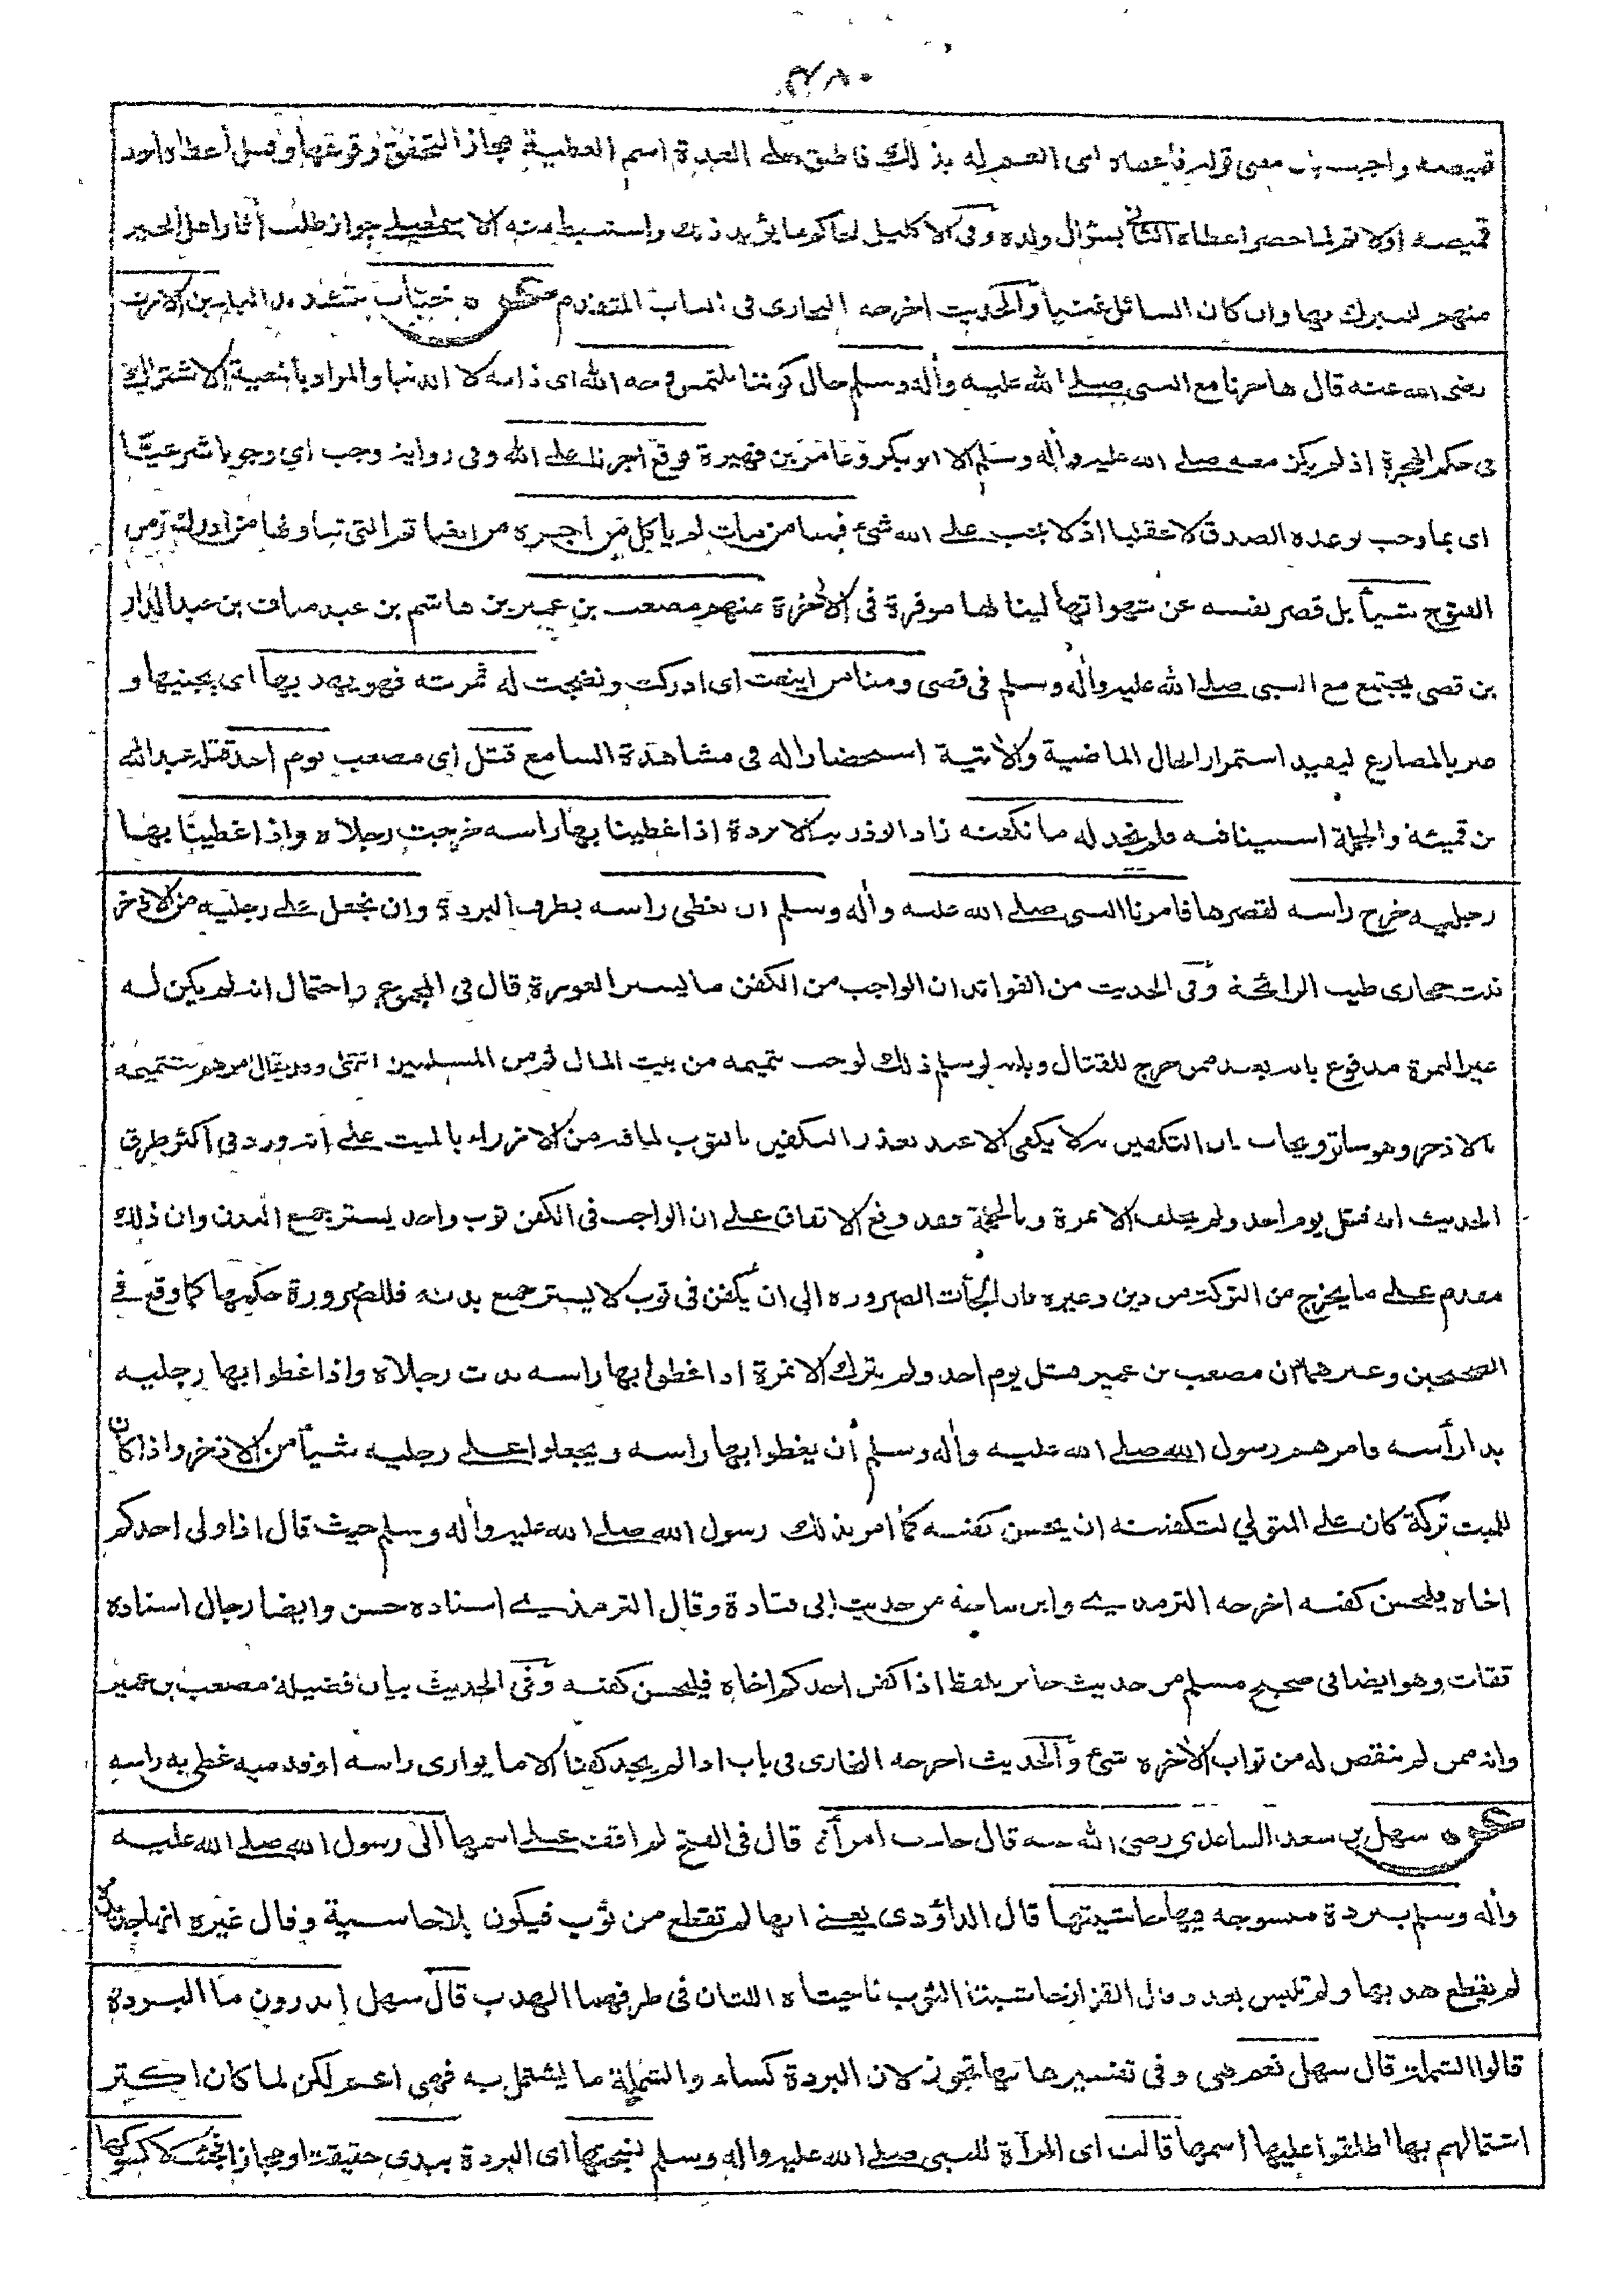 ٤٨٠
قميصه واجيب بان معنى قوله فاعطاه اى انعم له بذلك فاطلق على العدة اسم العطية مجازا لتحقق وقوعها وقيل أعطاه احد
قميصه اولا ثم لما حضر اعطاه الثانى بسؤال ولده وفى الاكليل للحاكم ما يؤيد ذلك واستنبط منه الاسمعيلى جواز طلب أثار اهل الخير
منهم للتبرك بها وان كان السائل غنيا والحديث اخرجه البخارى فى الباب المتقدم عن خباب بتشديد الباء بن الارت
رضى الله عنه قال هاجرنا مع النبى صلى الله عليه وأله وسلم حال كوننا نلتمس وجه الله اى ذاته لا الدنيا والمراد بالمعية الاشتراك
فى حكم الهجرة اذ لم يكن معه صلى الله عليه وأله وسلم الا ابو بكر وعامر بن فهيرة فوقع اجرنا على الله وفى رواية وجب اي وجوبا شرعيا
اى بما وجب بوعده الصدق لا عقليا اذ لا يجب على الله شئ فمنا من مات لم ياكل من اجره من الغنائم التى تناولها من ادرك زمن
الفتوح شيأ بل قصر نفسه عن شهواتها لينالها موفرة فى الأخرة منهم مصعب بن عمير بن هاشم بن عبد مناف بن عبد الدار
بن قصى يجتمع مع النبى صلى الله عليه وأله وسلم فى قصى ومنا من اينعت اى ادركت ونضجت له ثمرته فهو يهدبها اى يجنيها و
عبر بالمضارع ليفيد استمرار الحال الماضية والأتية استحضارا له فى مشاهدة السامع قتل اى مصعب يوم احد قتله عبد الله
بن قميئة والجملة استينافية فلم نجد له ما نكفنه زاد ابو ذر به الا بردة اذا غطينا بها راسه خرجت رجلاه واذا غطينا بها
رجليه خرج راسه لقصرها فامرنا النبى صلى الله عليه وأله وسلم ان نغطى راسه بطرف البردة وان نجعل على رجليه من الاذخر
نبت حجازى طيب الرائحة وفى الحديث من الفوائد ان الواجب من الكفن ما يستر العورة قال فى المجموع واحتمال انه لم يكن له
غير النمرة مدفوع بانه بعيد ممن خرج للقتال وبانه لو سلم ذلك لوجب تتميمه من بيت المال ثم من المسلمين انتهى وقد يقال امرهم بتتميمه
بالاذخر وهو ساتر ويجاب بان التكفين به لا يكفى الا عند تعذر التكفين بالثوب لما فيه من الازراء بالميت على انه ورد فى اكثر طرق
الحديث انه قتل يوم احد ولم يخلف الا نمرة وبالجملة فقد وقع الاتفاق على ان الواجب فى الكفن ثوب واحد يستر جميع البدن وان ذلك
مقدم على ما يخرج من التركة من دين وغيره فان الجأت الضرورة الى ان يكفن فى ثوب لا يستر جميع بدنه فللضرورة حكمها كما وقع فى
الصحيحين وغيرهما ان مصعب بن عمير قتل يوم احد ولم يترك الا نمرة اذا غطوا بها راسه بدت رجلاه واذا غطوا بها رجليه
بدا رأسه فامرهم رسول الله صلى الله عليه وأله وسلم أن يغطوا بها راسه ويجعلوا على رجليه شيأ من الاذخر واذا كان
للميت تركة كان على المتولي لتكفينه ان يحسن كفنه كما امر بذلك رسول الله صلى الله عليه وأله وسلم حيث قال اذا ولى احدكم
اخاه فليحسن كفنه اخرجه الترمذى وابن ماجة من حديث ابى قتادة وقال الترمذى اسناده حسن وايضا رجال اسناده
ثقات وهو ايضا فى صحيح مسلم من حديث جابر بلفظ اذا كفن احدكم اخاه فليحسن كفنه وفى الحديث بيان فضيلة مصعب بن عمير
وانه ممن لم ينقص له من ثواب الأخرة شئ والحديث اخرجه البخارى فى باب اذا لم يجد كفنا الا ما يوارى راسه او قدميه غطى به راسه
عن سهل بن سعد الساعدى رضى الله عنه قال جاءت امرأة قال فى الفتح لم اقف على اسمها الى رسول الله صلى الله عليه
وأله وسلم ببردة منسوجة فيها حاشيتها قال الداؤدى يعنى انها لم تقطع من ثوب فيكون بلا حاشية وقال غيره انها جديدة
لم يقطع هدبها ولم تلبس بعد وقال القزاز حاشيتا الثوب ناحيتاه اللتان فى طرفهما الهدب قال سهل اتدرون ما البردة
قالوا الشملة قال سهل نعم هى وفى تفسيرها بها تجوز لان البردة كساء والشملة ما يشتمل به فهى اعم لكن لما كان اكثر
اشتمالهم بها اطلقوا عليها اسمها قالت اى المرأة للنبى صلى الله عليه وأله وسلم نسجتها اى البردة بيدى حقيقة او مجازا فجئت لاكسوكها